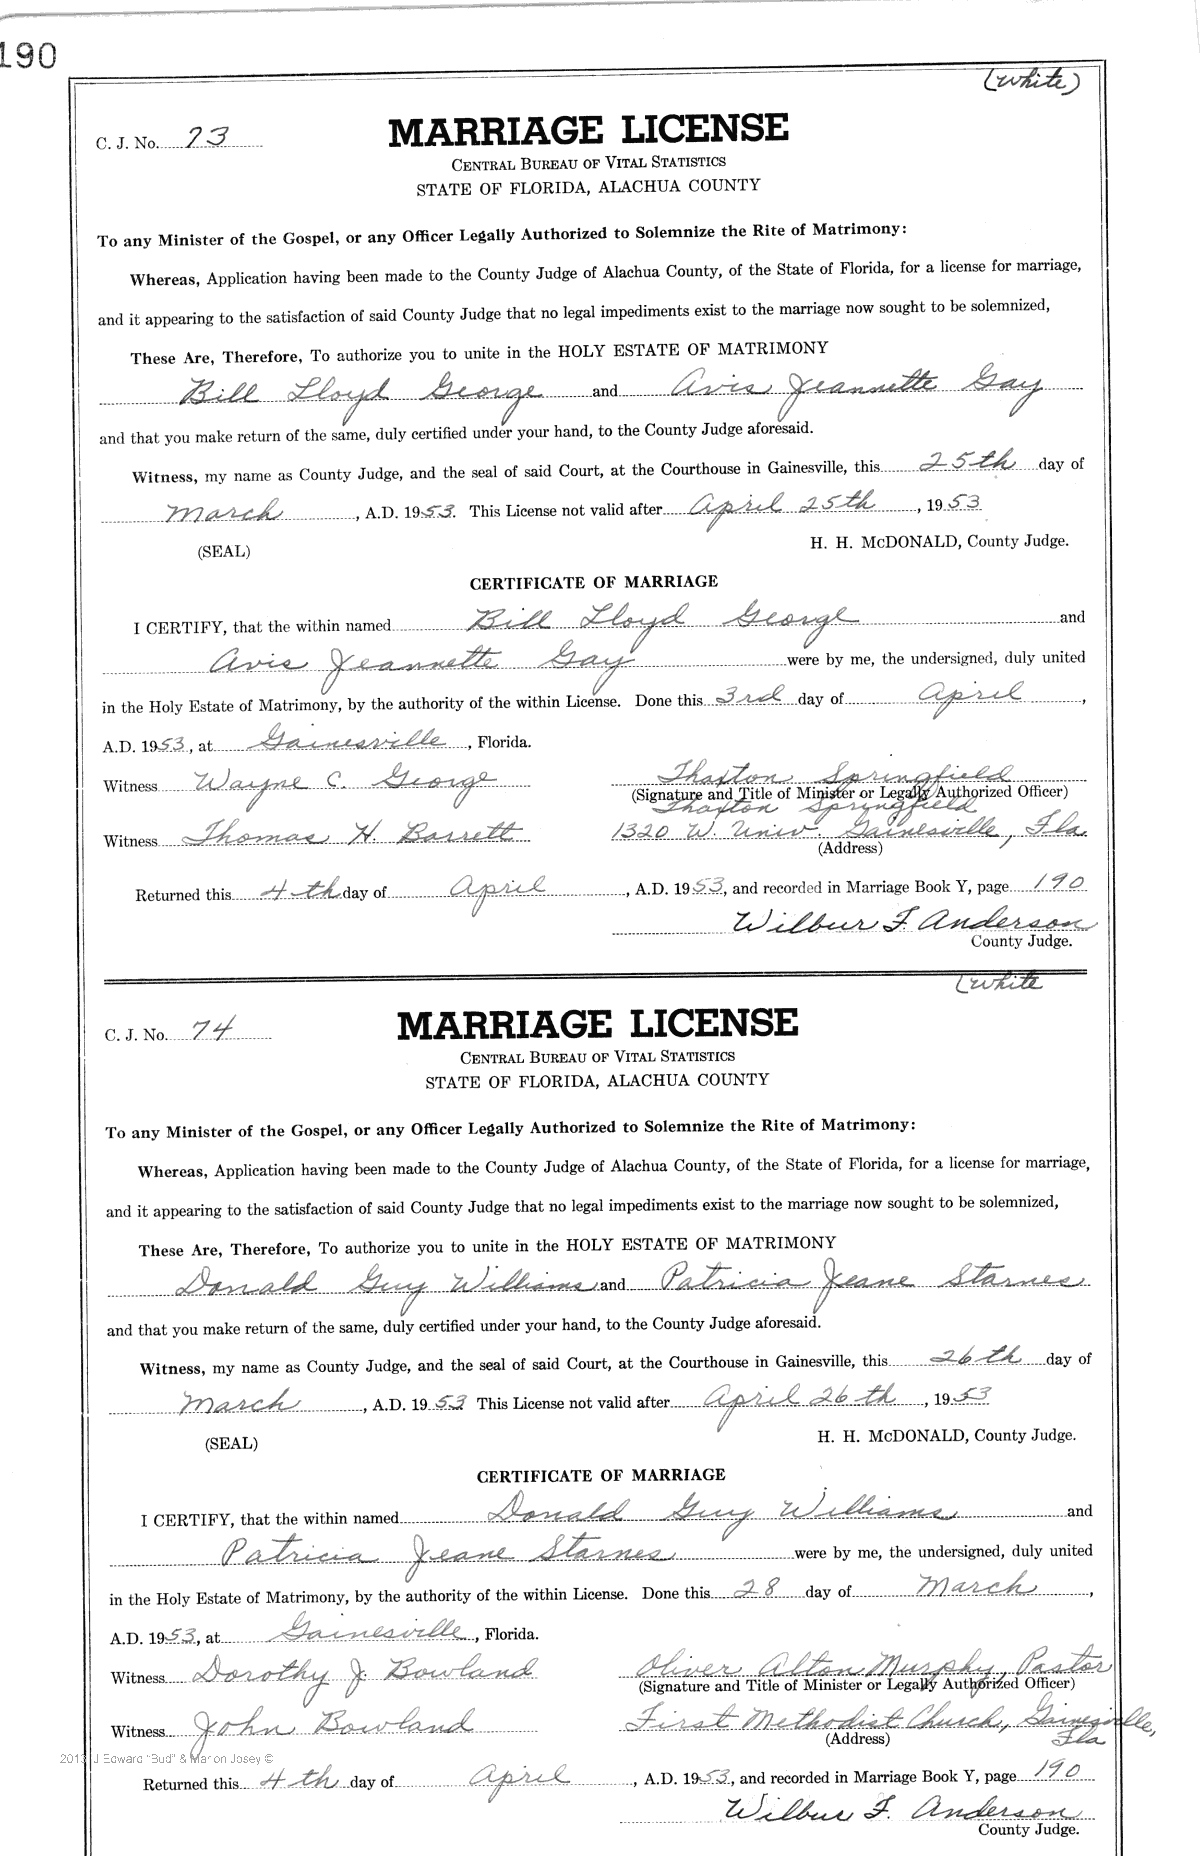 190
(White)
C. J. No. 73
MARRIAGE LICENSE
CENTRAL BUREAU OF VITAL STATISTICS
STATE OF FLORIDA, ALACHUA COUNTY
To any Minister of the Gospel, or any Officer Legally Authorized to Solemnize the Rite of Matrimony:
Whereas, Application having been made to the County Judge of Alachua County, of the State of Florida, for a license for marriage,
and it appearing to the satisfaction of said County Judge that no legal impediments exist to the marriage now sought to be solemnized,
These Are, Therefore, To authorize you to unite in the HOLY ESTATE OF MATRIMONY
Bill Lloyd George and Avis Jeannette Gay
and that you make return of the same, duly certified under your hand, to the County Judge aforesaid.
Witness, my name as County Judge, and the seal of said Court, at the Courthouse in Gainesville, this 25th day of
March, A.D. 1953. This License not valid after April 25th, 1953
(SEAL) H. H. McDONALD, County Judge.
CERTIFICATE OF MARRIAGE
I CERTIFY, that the within named Bill Lloyd George and
Avis Jeannette Gay were by me, the undersigned, duly united
in the Holy Estate of Matrimony, by the authority of the within License. Done this 3rd day of April,
A.D. 1953, at Gainesville, Florida.
Witness Wayne C. George Thaxton Springfield
(Signature and Title of Minister or Legally Authorized Officer)
Thaxton Springfield
Witness Thomas H. Barrett 1320 W. Univ Gainesville, Fla.
(Address)
Returned this 4th day of April, A.D. 1953, and recorded in Marriage Book Y, page 190
Wilbur F. Anderson
County Judge.
(White
C. J. No. 74
MARRIAGE LICENSE
CENTRAL BUREAU OF VITAL STATISTICS
STATE OF FLORIDA, ALACHUA COUNTY
To any Minister of the Gospel, or any Officer Legally Authorized to Solemnize the Rite of Matrimony:
Whereas, Application having been made to the County Judge of Alachua County, of the State of Florida, for a license for marriage,
and it appearing to the satisfaction of said County Judge that no legal impediments exist to the marriage now sought to be solemnized,
These Are, Therefore, To authorize you to unite in the HOLY ESTATE OF MATRIMONY
Donald Guy Williams and Patricia Jeane Starnes
and that you make return of the same, duly certified under your hand, to the County Judge aforesaid.
Witness, my name as County Judge, and the seal of said Court, at the Courthouse in Gainesville, this 26th day of
March, A.D. 1953 This License not valid after April 26th, 1953
(SEAL) H. H. McDONALD, County Judge.
CERTIFICATE OF MARRIAGE
I CERTIFY, that the within named Donald Guy Williams and
Patricia Jeane Starnes were by me, the undersigned, duly united
in the Holy Estate of Matrimony, by the authority of the within License. Done this 28 day of March,
A.D. 1953, at Gainesville, Florida.
Witness Dorothy J. Bowland Oliver Alton Murphy, Pastor
(Signature and Title of Minister or Legally Authorized Officer)
Witness John Bowland First Methodist Church, Gainesville,
Fla
(Address)
2013 J Edward "Bud" & Marion Josey ©
Returned this 4th day of April, A.D. 1953, and recorded in Marriage Book Y, page 190
Wilbur F. Anderson
County Judge.